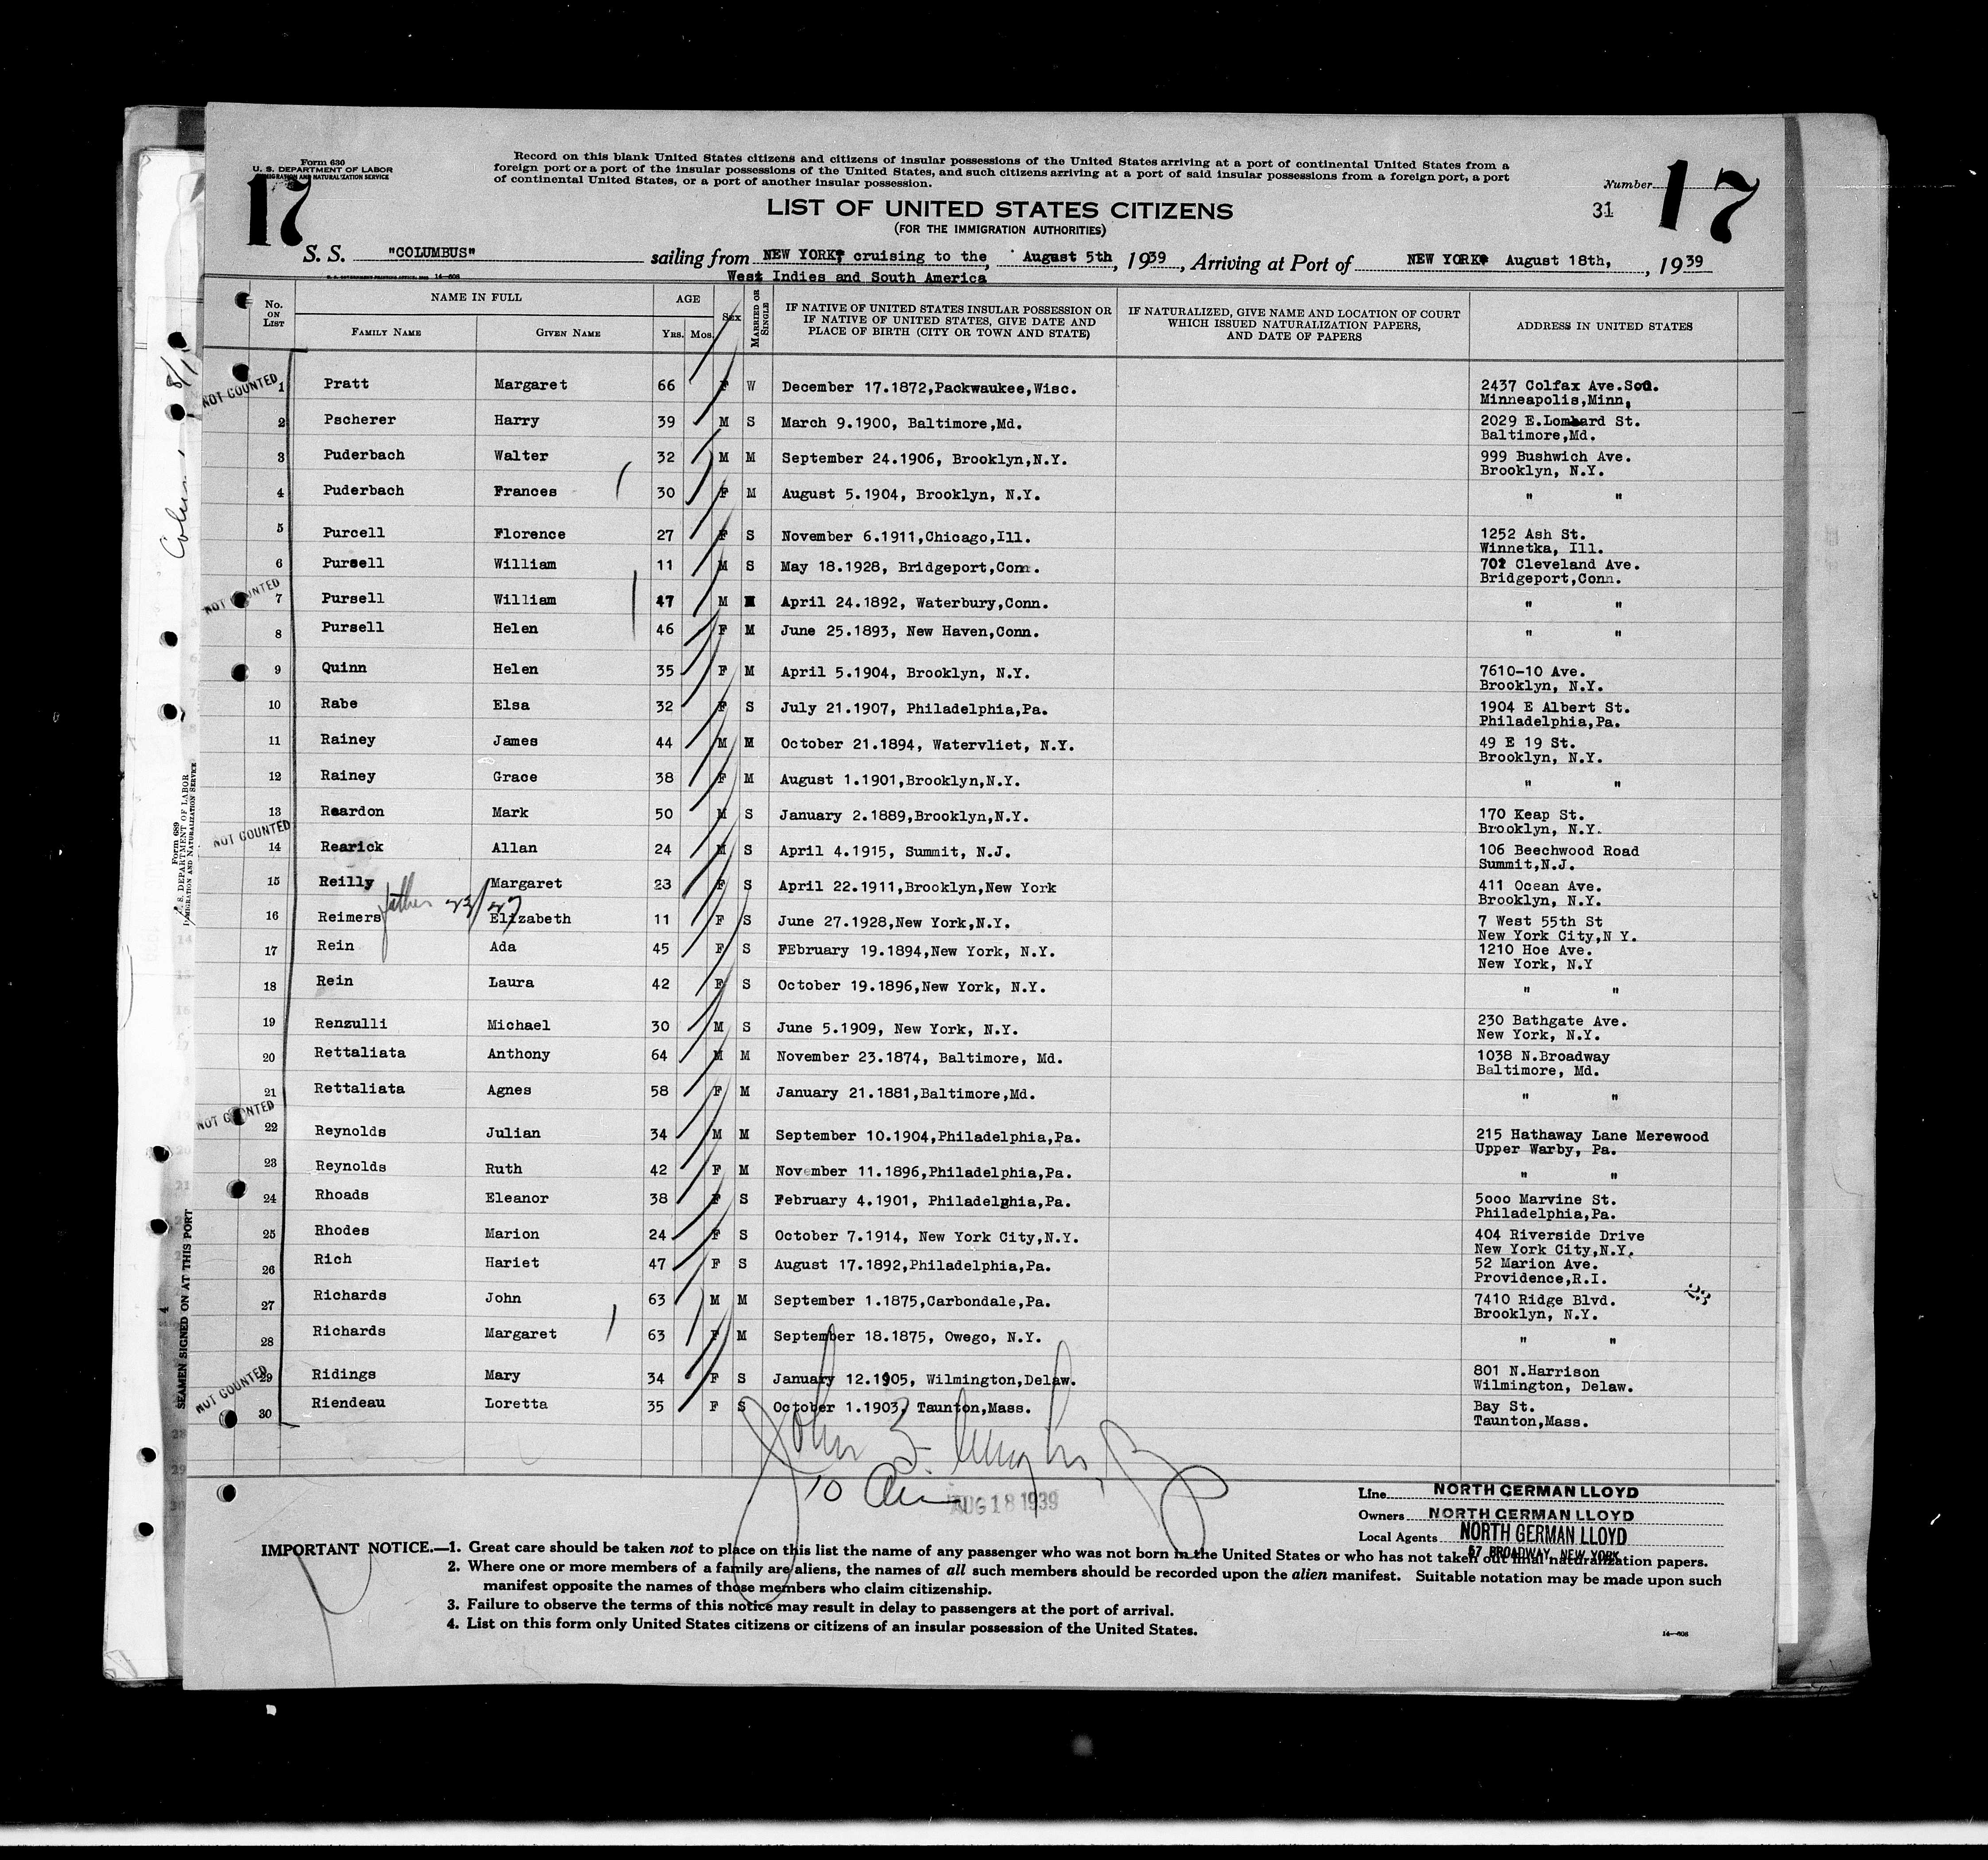 Form 630
U. S. DEPARTMENT OF LABOR
IMMIGRATION AND NATURALIZATION SERVICE
17
Record on this blank United States citizens and citizens of insular possessions of the United States arriving at a port of continental United States from a
foreign port or a port of the insular possessions of the United States, and such citizens arriving at a port of said insular possessions from a foreign port, a port
of continental United States, or a port of another insular possession.
Number 17
31
LIST OF UNITED STATES CITIZENS
(FOR THE IMMIGRATION AUTHORITIES)
S. S. "COLUMBUS" sailing from NEW YORK, cruising to the August 5th, 1939, Arriving at Port of NEW YORK August 18th, 1939
West Indies and South America
No. ON LIST NAME IN FULL FAMILY NAME GIVEN NAME AGE YRS. MOS. SEX MARRIED OR SINGLE IF NATIVE OF UNITED STATES INSULAR POSSESSION OR IF NATIVE OF UNITED STATES, GIVE DATE AND PLACE OF BIRTH (CITY OR TOWN AND STATE) IF NATURALIZED, GIVE NAME AND LOCATION OF COURT WHICH ISSUED NATURALIZATION PAPERS, AND DATE OF PAPERS ADDRESS IN UNITED STATES
NOT COUNTED
1 Pratt Margaret 66 F W December 17.1872,Packwaukee,Wisc. 2437 Colfax Ave.Sou.
Minneapolis,Minn,
2 Pscherer Harry 39 M S March 9.1900, Baltimore,Md. 2029 E.Lombard St.
Baltimore,Md.
3 Puderbach Walter 32 M M September 24.1906, Brooklyn,N.Y. 999 Bushwich Ave.
Brooklyn, N.Y.
4 Puderbach Frances 30 F M August 5.1904, Brooklyn, N.Y. " "
5 Purcell Florence 27 F S November 6.1911,Chicago,Ill. 1252 Ash St.
Winnetka, Ill.
6 Pursell William 11 M S May 18.1928, Bridgeport,Conn. 702 Cleveland Ave.
Bridgeport,Conn.
NOT COUNTED
7 Pursell William 47 M M April 24.1892, Waterbury,Conn. " "
8 Pursell Helen 46 F M June 25.1893, New Haven,Conn. " "
9 Quinn Helen 35 F M April 5.1904, Brooklyn, N.Y. 7610-10 Ave.
Brooklyn, N.Y.
10 Rabe Elsa 32 F S July 21.1907, Philadelphia,Pa. 1904 E Albert St.
Philadelphia,Pa.
11 Rainey James 44 M M October 21.1894, Watervliet, N.Y. 49 E 19 St.
Brooklyn, N.Y.
12 Rainey Grace 38 F M August 1.1901,Brooklyn,N.Y. " "
13 Reardon Mark 50 M S January 2.1889,Brooklyn,N.Y. 170 Keap St.
Brooklyn, N.Y.
NOT COUNTED
14 Rearick Allan 24 M S April 4.1915, Summit, N.J. 106 Beechwood Road
Summit,N.J.
15 Reilly Margaret 23 F S April 22.1911,Brooklyn,New York 411 Ocean Ave.
Brooklyn, N.Y.
father 23/27
16 Reimers Elizabeth 11 F S June 27.1928,New York,N.Y. 7 West 55th St
New York City,N Y.
17 Rein Ada 45 F S FEbruary 19.1894,New York, N.Y. 1210 Hoe Ave.
New York, N.Y
18 Rein Laura 42 F S October 19.1896,New York, N.Y. " "
19 Renzulli Michael 30 M S June 5.1909, New York, N.Y. 230 Bathgate Ave.
New York, N.Y.
20 Rettaliata Anthony 64 M M November 23.1874, Baltimore, Md. 1038 N.Broadway
Baltimore, Md.
21 Rettaliata Agnes 58 F M January 21.1881,Baltimore,Md. " "
NOT COUNTED
22 Reynolds Julian 34 M M September 10.1904,Philadelphia,Pa. 215 Hathaway Lane Merewood
Upper Warby, Pa.
23 Reynolds Ruth 42 F M November 11.1896,Philadelphia,Pa. " "
24 Rhoads Eleanor 38 F S February 4.1901, Philadelphia,Pa. 5000 Marvine St.
Philadelphia,Pa.
25 Rhodes Marion 24 F S October 7.1914, New York City,N.Y. 404 Riverside Drive
New York City,N.Y.
26 Rich Hariet 47 F S August 17.1892,Philadelphia,Pa. 52 Marion Ave.
Providence,R.I.
27 Richards John 63 M M September 1.1875,Carbondale,Pa. 7410 Ridge Blvd.
Brooklyn, N.Y.
28 Richards Margaret 63 F M September 18.1875, Owego, N.Y. " "
29 Ridings Mary 34 F S January 12.1905, Wilmington,Delaw. 801 N.Harrison
Wilmington, Delaw.
NOT COUNTED
30 Riendeau Loretta 35 F S October 1.1903, Taunton,Mass. Bay St.
Taunton,Mass.
AUG 18 1939
Line NORTH GERMAN LLOYD
Owners NORTH GERMAN LLOYD
Local Agents NORTH GERMAN LLOYD
57 BROADWAY, NEW YORK
IMPORTANT NOTICE.—1. Great care should be taken not to place on this list the name of any passenger who was not born in the United States or who has not taken out final naturalization papers.
2. Where one or more members of a family are aliens, the names of all such members should be recorded upon the alien manifest. Suitable notation may be made upon such
manifest opposite the names of those members who claim citizenship.
3. Failure to observe the terms of this notice may result in delay to passengers at the port of arrival.
4. List on this form only United States citizens or citizens of an insular possession of the United States.
14—608
Form 689
U. S. DEPARTMENT OF LABOR
IMMIGRATION AND NATURALIZATION SERVICE
SEAMEN SIGNED ON AT THIS PORT